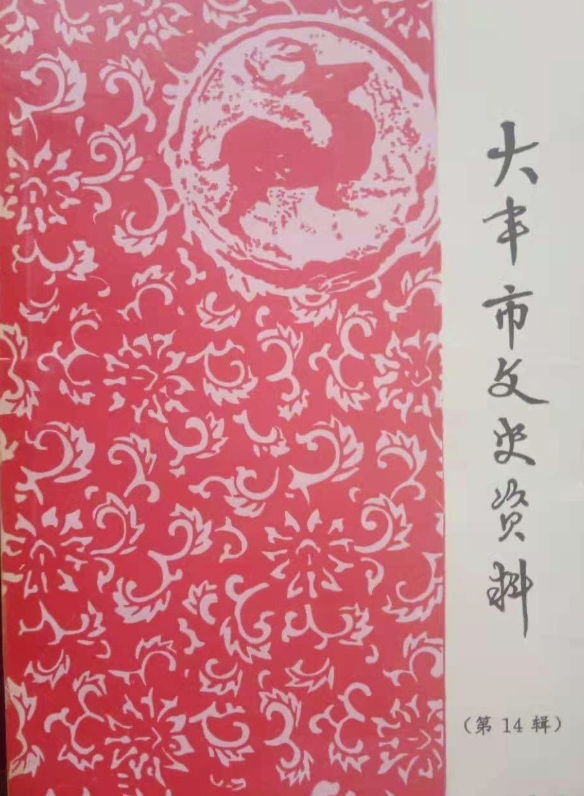 大丰市文史资料
（第 14 辑）